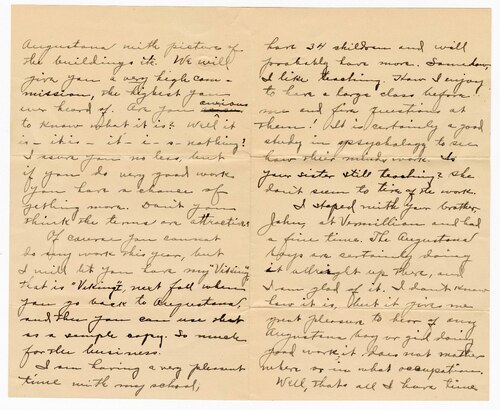 Augustana with picture of
the buildings etc. We will
give you a very high com-
mission, the highest you
ever heard of. Are you curious
to know what it is? Well it
is - it is - it - i - s - nothing!
I assure you no less, but
if you do very good work
you have a chance of
getting more. Don't you
think the terms are attractive
Of course you cannot
do any work this year, but
I will let you have my "Viking"
that is "Viking I" next fall when
you go back to Augustana,
and then you can use that
as a sample copy. So much
for the business.
I am having a very pleasant
time with my school,
have 34 children and will
probably have more. Somehow,
I like teaching. How I enjoy
to have a large class before
me and fire questions at
them! It is certainly a good
study in psychology to see
how their minds work. Is
your sister still teaching? She
don't seem to tire of the work.
I stoped with your brother
John, at Vermillion and had
a fine time. The Augustana
boys are certainly doing
it allright up there, and
I am glad of it. I don't know
how it is, but it gives me
great pleasure to hear of any
Augustana boy or girl doing
good work, it does not matter
where or in what occupation.
Well, thats all I have time